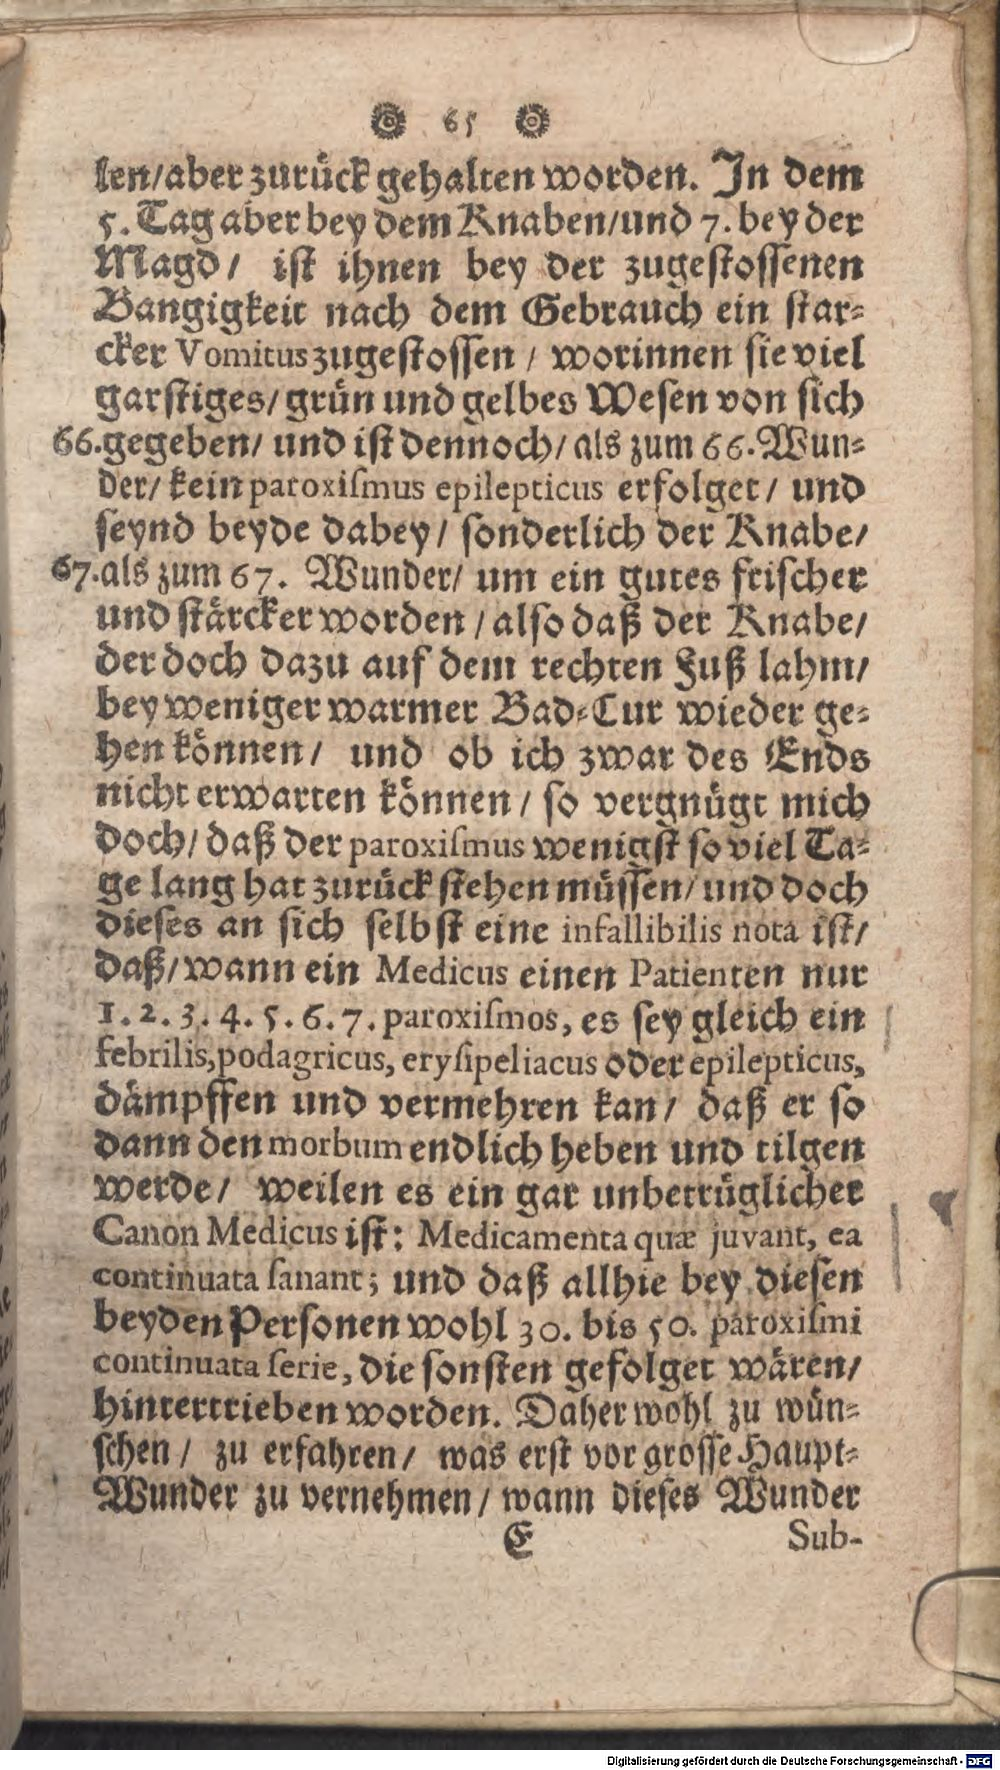 65
len/aber zurück gehalten worden. In dem
5. Tag aber bey dem Knaben/und 7. bey der
Magd/ ist ihnen bey der zugestossenen
Bangigkeit nach dem Gebrauch ein star-
cker Vomitus zugestossen / worinnen sie viel
garstiges/ grün und gelbes Wesen von sich
66. gegeben/ und ist dennoch/ als zum 66. Wun-
der/ kein paroxiſmus epilepticus erfolget/ und
seynd beyde dabey/ sonderlich der Knabe/
67. als zum 67. Wunder/ um ein gutes frischer
und stärcker worden / also daß der Knabe/
der doch dazu auf dem rechten Fuß lahm/
bey weniger warmer Bad-Cur wieder ge-
hen können/ und ob ich zwar des Ends
nicht erwarten können / so vergnügt mich
doch/ daß der paroxiſmus wenigst so viel Ta-
ge lang hat zurück stehen müssen/ und doch
dieses an sich selbst eine infallibilis nota ist/
daß/ wann ein Medicus einen Patienten nur
1. 2. 3. 4. 5. 6. 7. paroxiſmos, es sey gleich ein
febrilis, podagricus, eryſipeliacus oder epilepticus,
dämpffen und vermehren kan/ daß er so
dann den morbum endlich heben und tilgen
werde/ weilen es ein gar unbetrüglicher
Canon Medicus ist: Medicamenta quæ juvant, ea
continuata ſanant; und daß allhie bey diesen
beyden Personen wohl 30. bis 50. paroxiſmi
continuata ſerie, die sonsten gefolget wären/
hintertrieben worden. Daher wohl zu wün-
schen / zu erfahren/ was erst vor grosse Haupt-
Wunder zu vernehmen / wann dieses Wunder
E Sub-
Digitalisierung gefördert durch die Deutsche Forschungsgemeinschaft - DFG